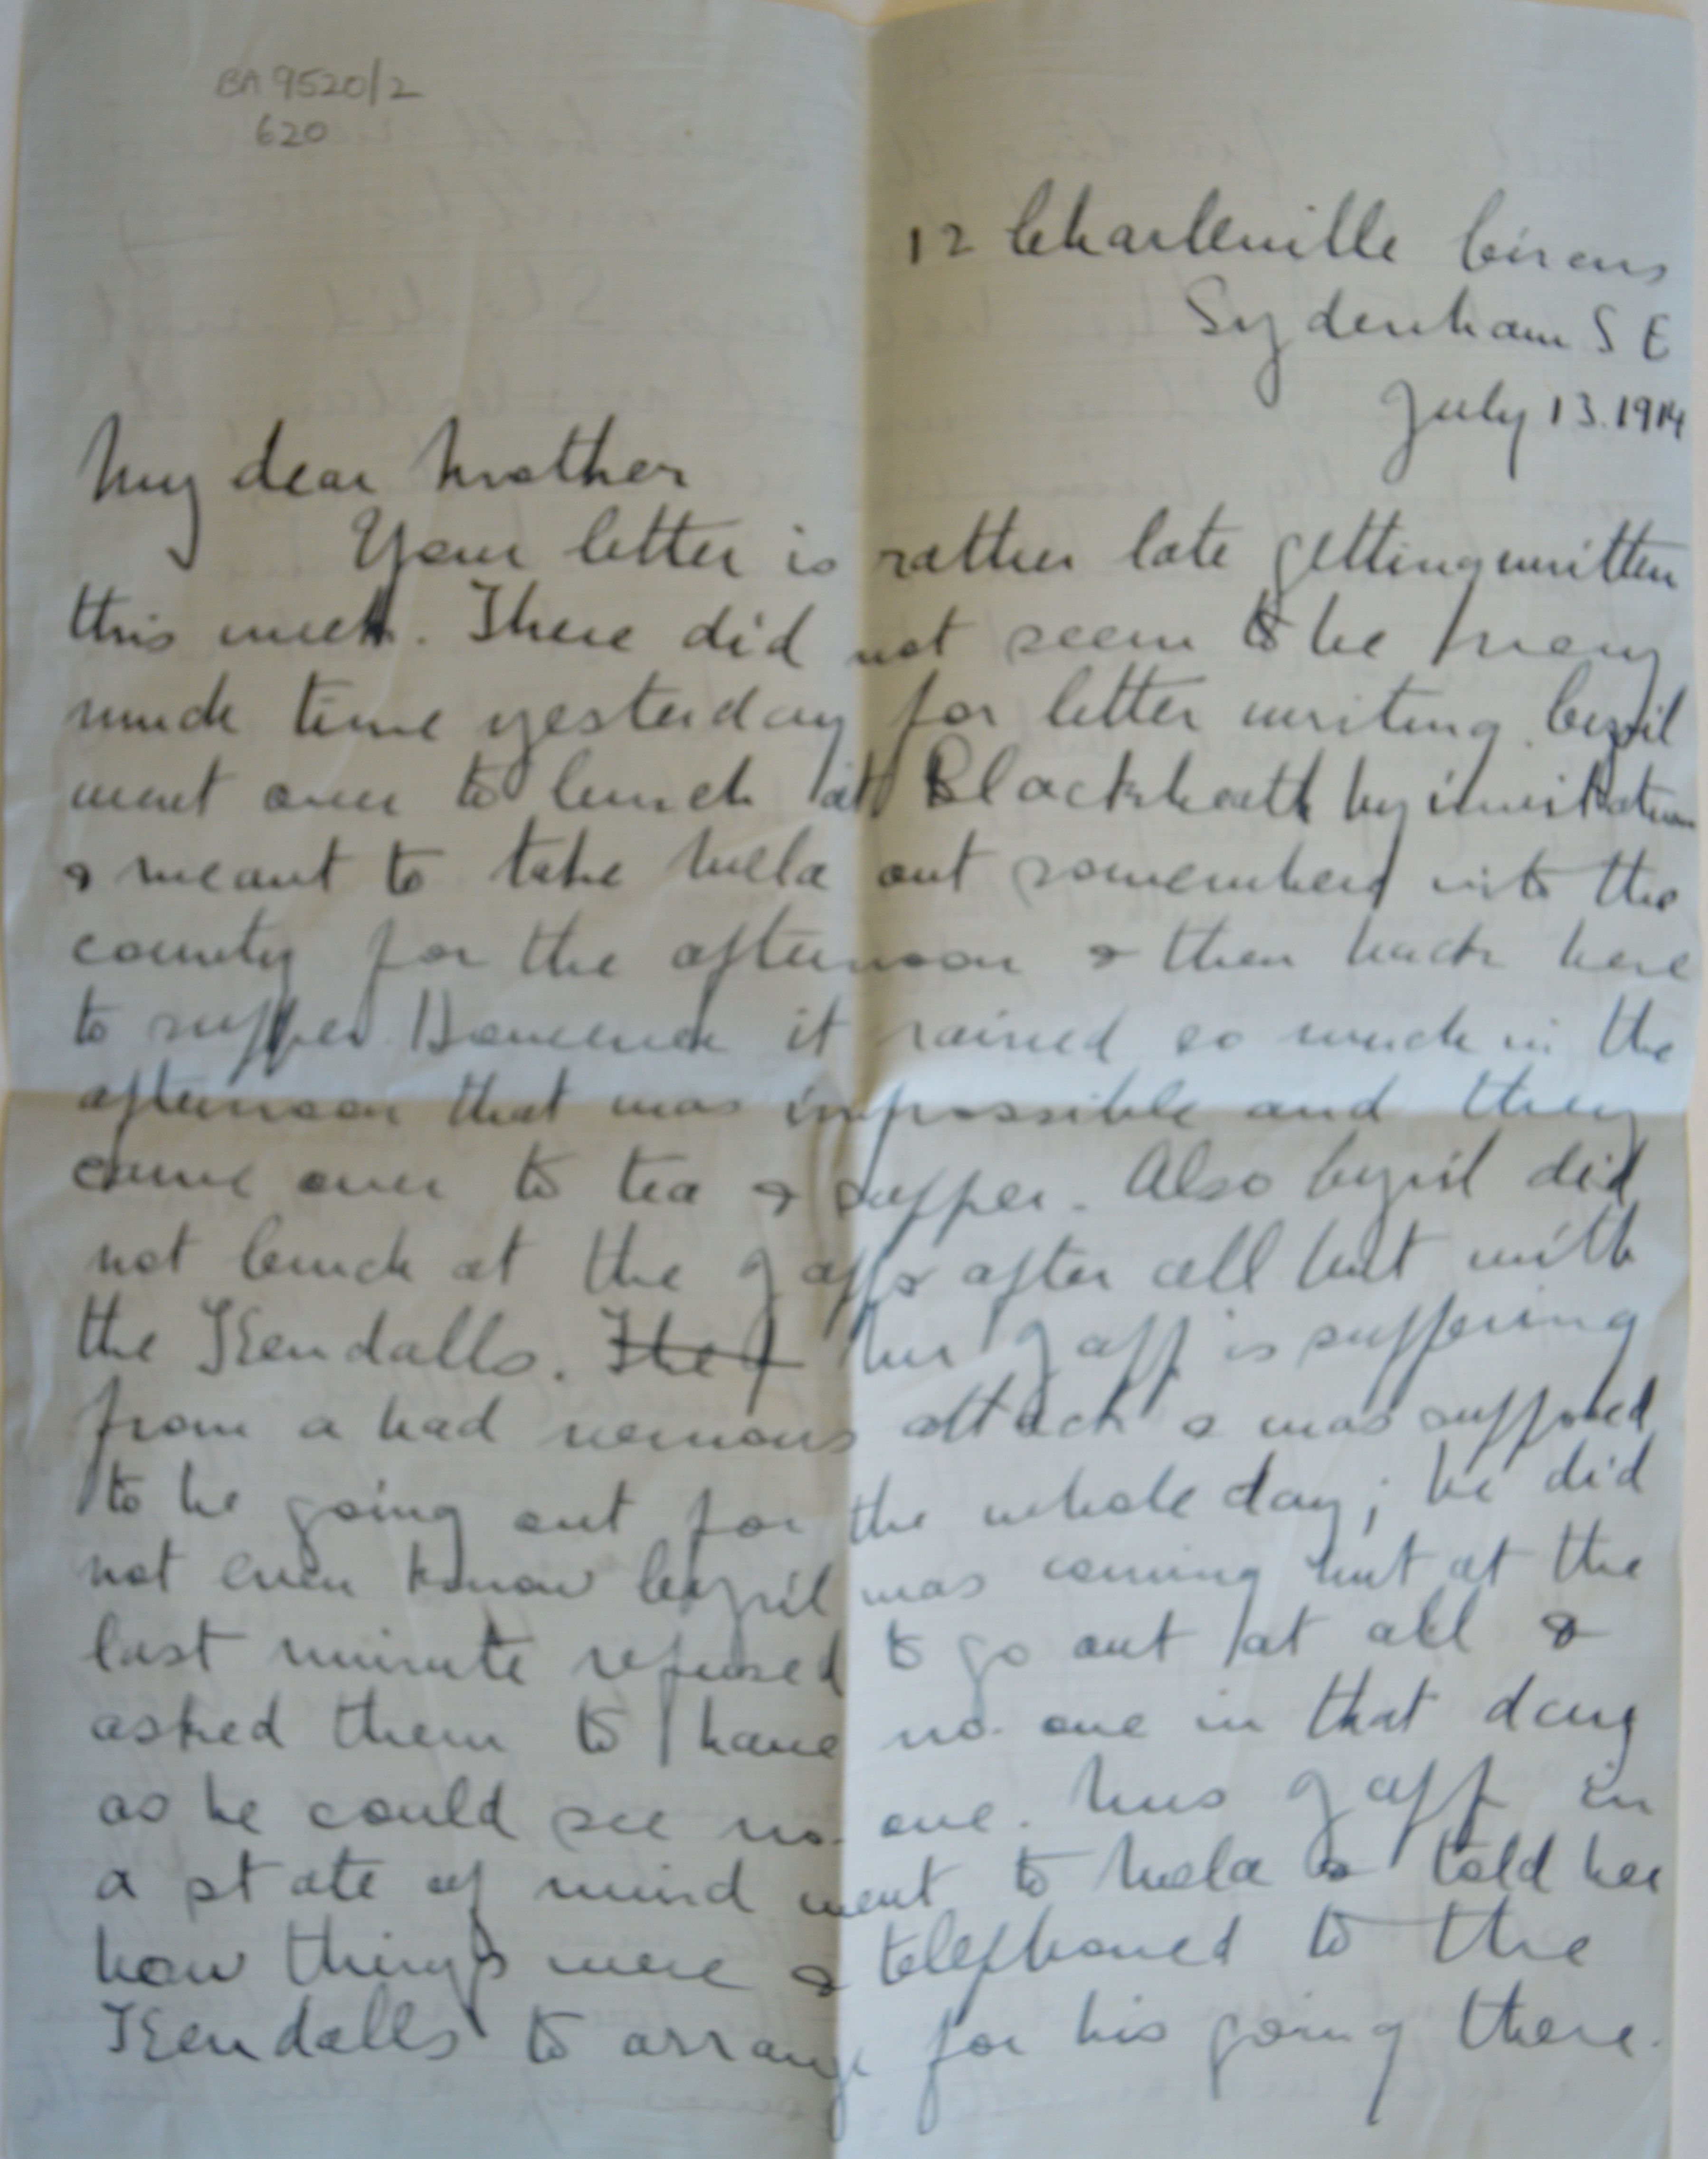 BA 9520/2
620
12 Charleville Circus
Sydenham S E
July 13. 1914
My dear Mother
Your letter is rather late getting written
this week. There did not seem to be very
much time yesterday for letter writing. Cyril
went over to lunch at Blackheath by invitation
& meant to take Mela out somewhere into the
country for the afternoon & then back here
to supper. However it rained so much in the
afternoon that was impossible and they
came over to tea & supper. Also Cyril did
not lunch at the Jaffs after all but with
the Kendalls. The J Mr Jaff is suffering
from a bad nervous attack & was supposed
to be going out for the whole day; he did
not even know Cyril was coming but at the
last minute refused to go out at all &
asked them to have no one in that day
as he could see no one. Mrs Jaff in
a state of mind went to Mela & told her
how things were & telephoned to the
Kendalls to arrange for his going there.